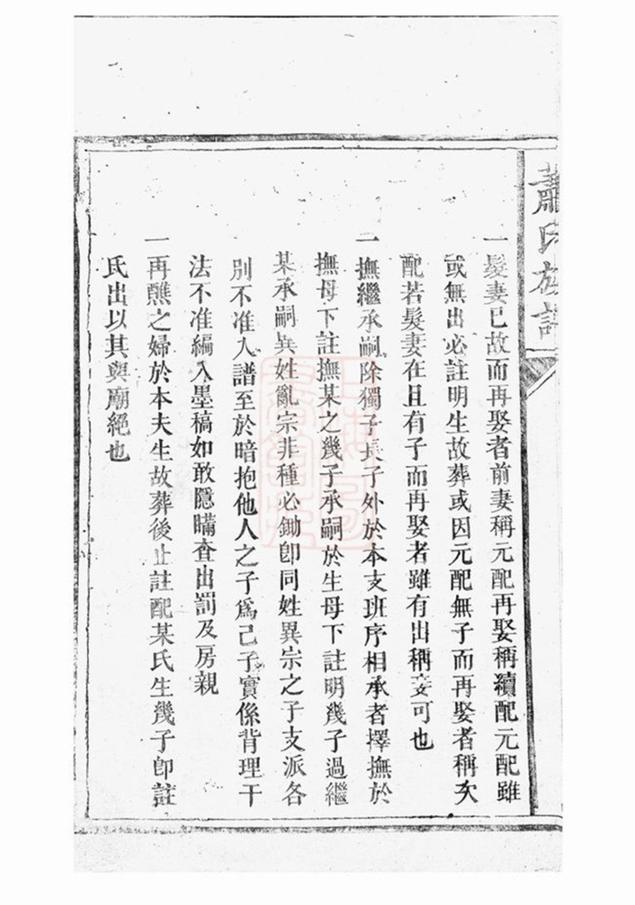 蕭氏族譜
一髮妻已故而再娶者前妻稱元配再娶稱續配元配雖
或無出必註明生故葬或因元配無子而再娶者稱次
配若髮妻在且有子而再娶者雖有出稱妾可也
一撫繼承嗣除獨子長子外於本支班序相承者擇撫於
撫母下註撫某之幾子承嗣於生母下註明幾子過繼
某承嗣異姓亂宗非種必鋤卽同姓異宗之子支派各
別不准入譜至於暗抱他人之子爲己子實係背理干
法不准編入墨稿如敢隱瞞查出罰及房親
一再醮之婦於本夫生故葬後止註配某氏生幾子卽註
氏出以其與廟絕也